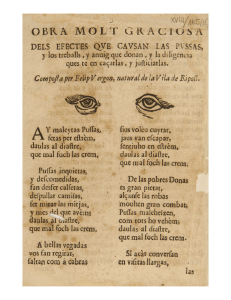 OBRA MOLT GRACIOSA
DELS EFECTES QVE CAVSAN LAS PVSSAS,
y los treballs, y amuig que donan, y la diligencia
ques te en caçarlas, y justiciarlas.
Composta per Felip Vargon, natural de la Vila de Ripoll.
AY maleytas Pussas,
fetas per estrém,
daulas al diastre,
que mal foch las crem.
Pussas inquietas,
y descomedidas,
fan desfer calsetas,
despullar camisas,
fer mirar las mitjas,
y mes del que avém
daulas al diastre,
que mal foch las crem.
A bellas vegadas
vos fan regirar,
saltan com á cabras
sius volen
javan escapar,
sentiuho en estrém,
daulas al diastre,
que mal foch las crem.
De las pobres Donas
es gran pietat,
alçanse las robas
mouhen gran combat;
Pussas maleheixen,
com tots ho vehém
daulas al diastre,
que mal foch las crem.
Si acás conversan
en visitas llargas,
las